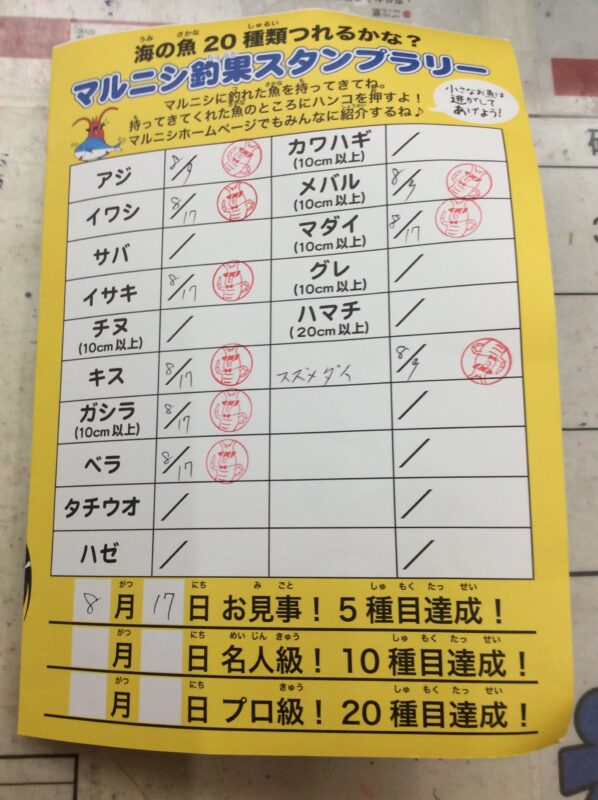 海の魚20種類つれるかな？
マルニシ釣果スタンプラリー
マルニシに釣れた魚を持ってきてね。
持ってきてくれた魚のところにハンコを押すよ！
マルニシホームページでもみんなに紹介するね♪
小さなお魚は
逃がして
あげよう！
アジ 8/9 カワハギ(10cm以上) /
イワシ 8/17 メバル(10cm以上) 8/9
サバ / マダイ(10cm以上) 8/17
イサキ 8/17 グレ(10cm以上) /
チヌ(10cm以上) / ハマチ(20cm以上) /
キス 8/17 スズメダイ 8/9
ガシラ(10cm以上) 8/17 /
ベラ 8/17 /
タチウオ / /
ハゼ / /
8月17日 お見事！ 5種目達成！
月 日 名人級！ 10種目達成！
月 日 プロ級！ 20種目達成！